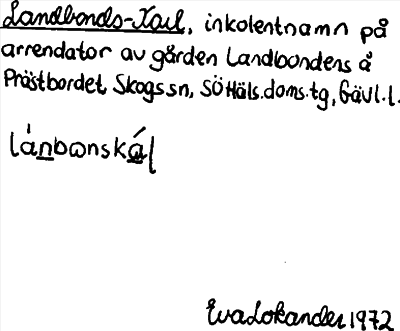 Landbonds-Kal, inkolentnamn på
arrendator av gården Landbondens å
Prästbordet, Skogs sn, SÖ Häls. doms. tg, Gävl. l.
lánbωnskál
Eva Lokander 1972